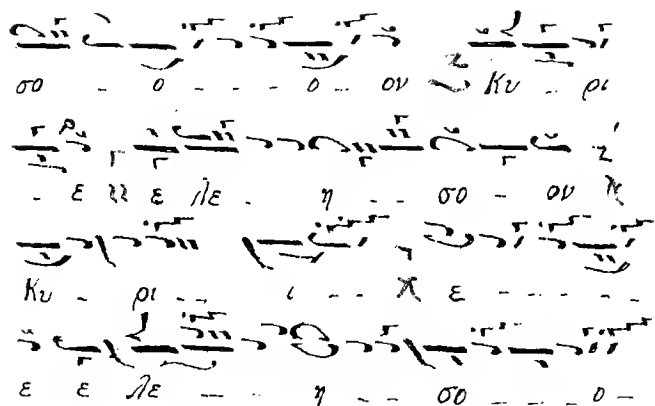 σο - ο - - - - ο - - ον Κυ - - ρι
- ε ε λε - η - - - σο - ον
Κυ - ρι - - ι - - - ε - - - - - -
ε ε λε - - - - η - - σο - - - - ο -